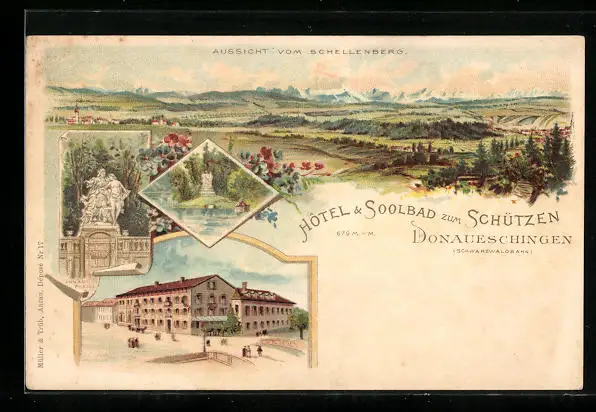 AUSSICHT VOM SCHELLENBERG.
HÔTEL & SOOLBAD ZUM SCHÜTZEN
679 M. ü. M.
DONAUESCHINGEN
(SCHWARZWALDBAHN)
Müller & Trüb, Aarau. Déposé Nr. 17